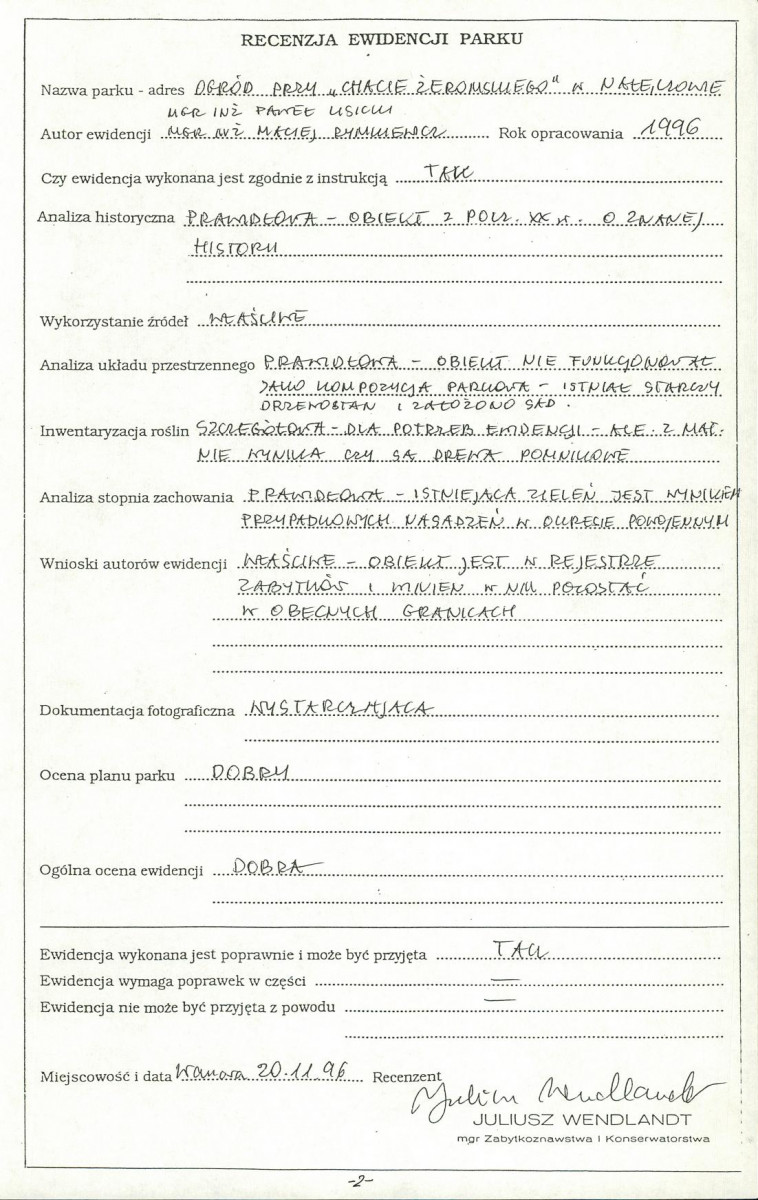 RECENZJA EWIDENCJI PARKU
Nazwa parku - adres OGRÓD PRZY „CHACIE ŻEROMSKIEGO" W NAŁĘCZOWIE
MGR INŻ PAWEŁ LISICKI
Autor ewidencji MGR INŻ MACIEJ RYMKIEWICZ Rok opracowania 1996
Czy ewidencja wykonana jest zgodnie z instrukcją TAK
Analiza historyczna PRAWIDŁOWA - OBIEKT Z POCZ. XX W. O ZNANEJ
HISTORII
Wykorzystanie źródeł WŁAŚCIWE
Analiza układu przestrzennego PRAWIDŁOWA - OBIEKT NIE FUNKCJONOWAŁ
JAKO KOMPOZYCJA PARKOWA - ISTNIAŁ STARSZY
DRZEWOSTAN I ZAŁOŻONO SAD.
Inwentaryzacja roślin SZCZEGÓŁOWA - DLA POTRZEB EWIDENCJI - ALE Z MAT.
NIE WYNIKA CZY SĄ DRZEWA POMNIKOWE
Analiza stopnia zachowania PRAWIDŁOWA - ISTNIEJĄCA ZIELEŃ JEST WYNIKIEM
PRZYPADKOWYCH NASADZEŃ W OKRESIE POWOJENNYM
Wnioski autorów ewidencji WŁAŚCIWE - OBIEKT JEST W REJESTRZE
ZABYTKÓW I WINIEN W NIM POZOSTAĆ
W OBECNYCH GRANICACH
Dokumentacja fotograficzna WYSTARCZAJĄCA
Ocena planu parku DOBRY
Ogólna ocena ewidencji DOBRA
Ewidencja wykonana jest poprawnie i może być przyjęta TAK
Ewidencja wymaga poprawek w części —
Ewidencja nie może być przyjęta z powodu —
Miejscowość i data Warszawa 20.11.96 Recenzent
Juliusz Wendlandt
JULIUSZ WENDLANDT
mgr Zabytkoznawstwa i Konserwatorstwa
-2-